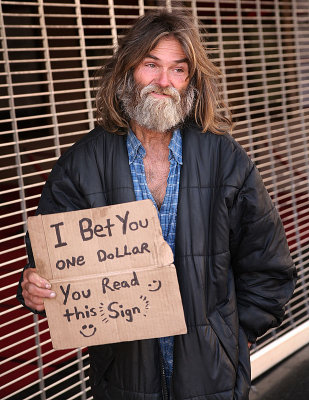 I Bet You
one Dollar
You Read
this Sign